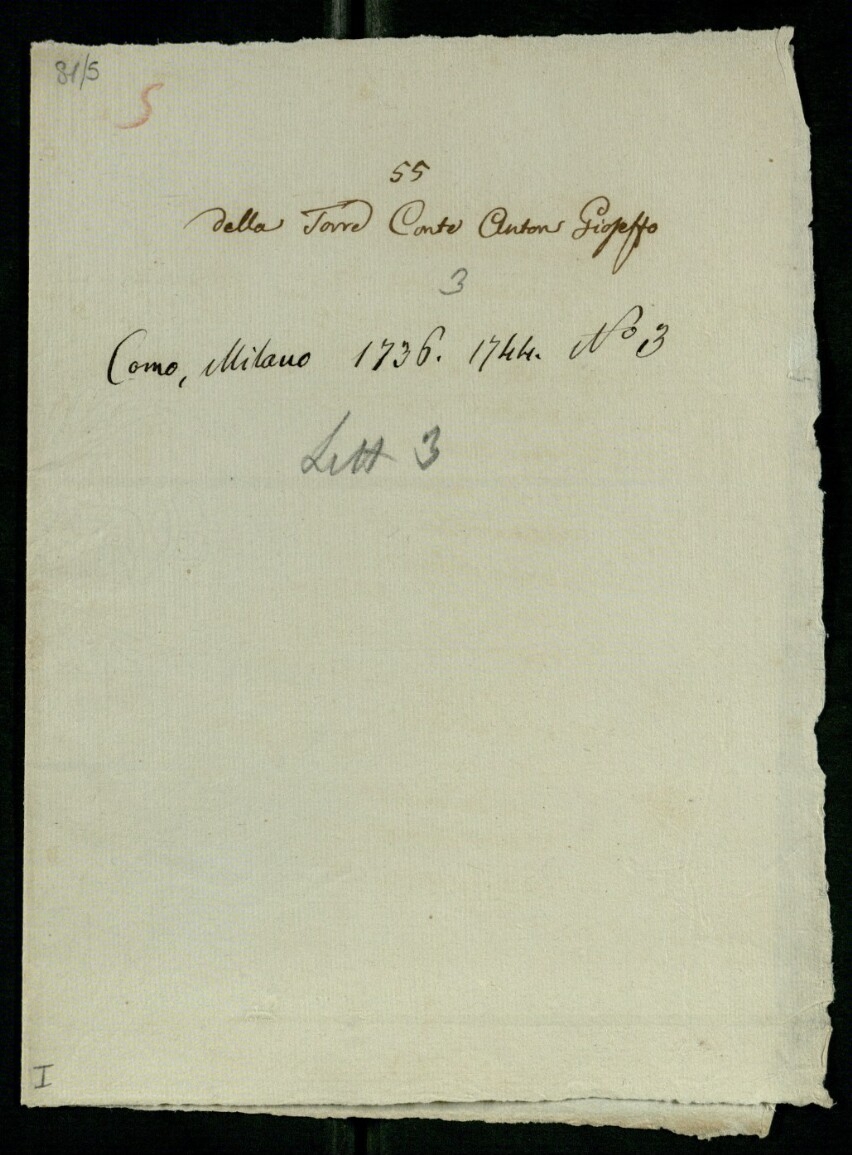 81/5
5
55
della Torre Conte Anton Gioseffo
3
Como, Milano 1736. 1744. No 3
Lett 3
I